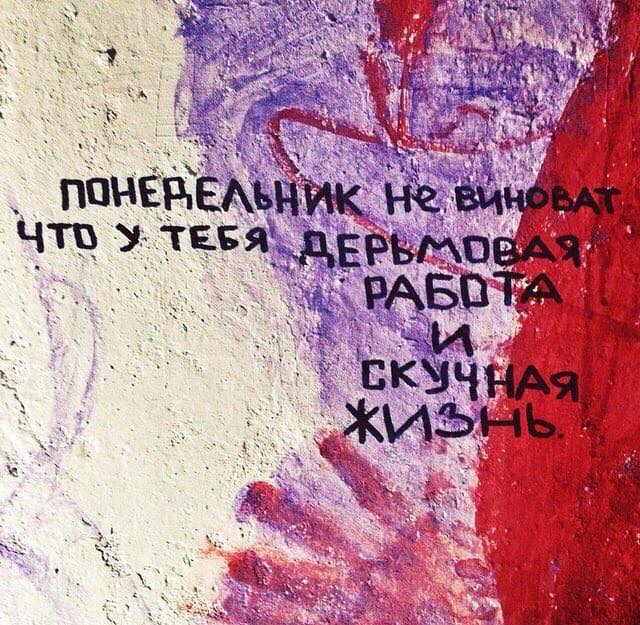 ПОНЕДЕЛЬНИК Не ВИНОВАТ
ЧТО У ТЕБЯ ДЕРЬМОВАЯ
РАБОТА
И
СКУЧНАЯ
ЖИЗНЬ.